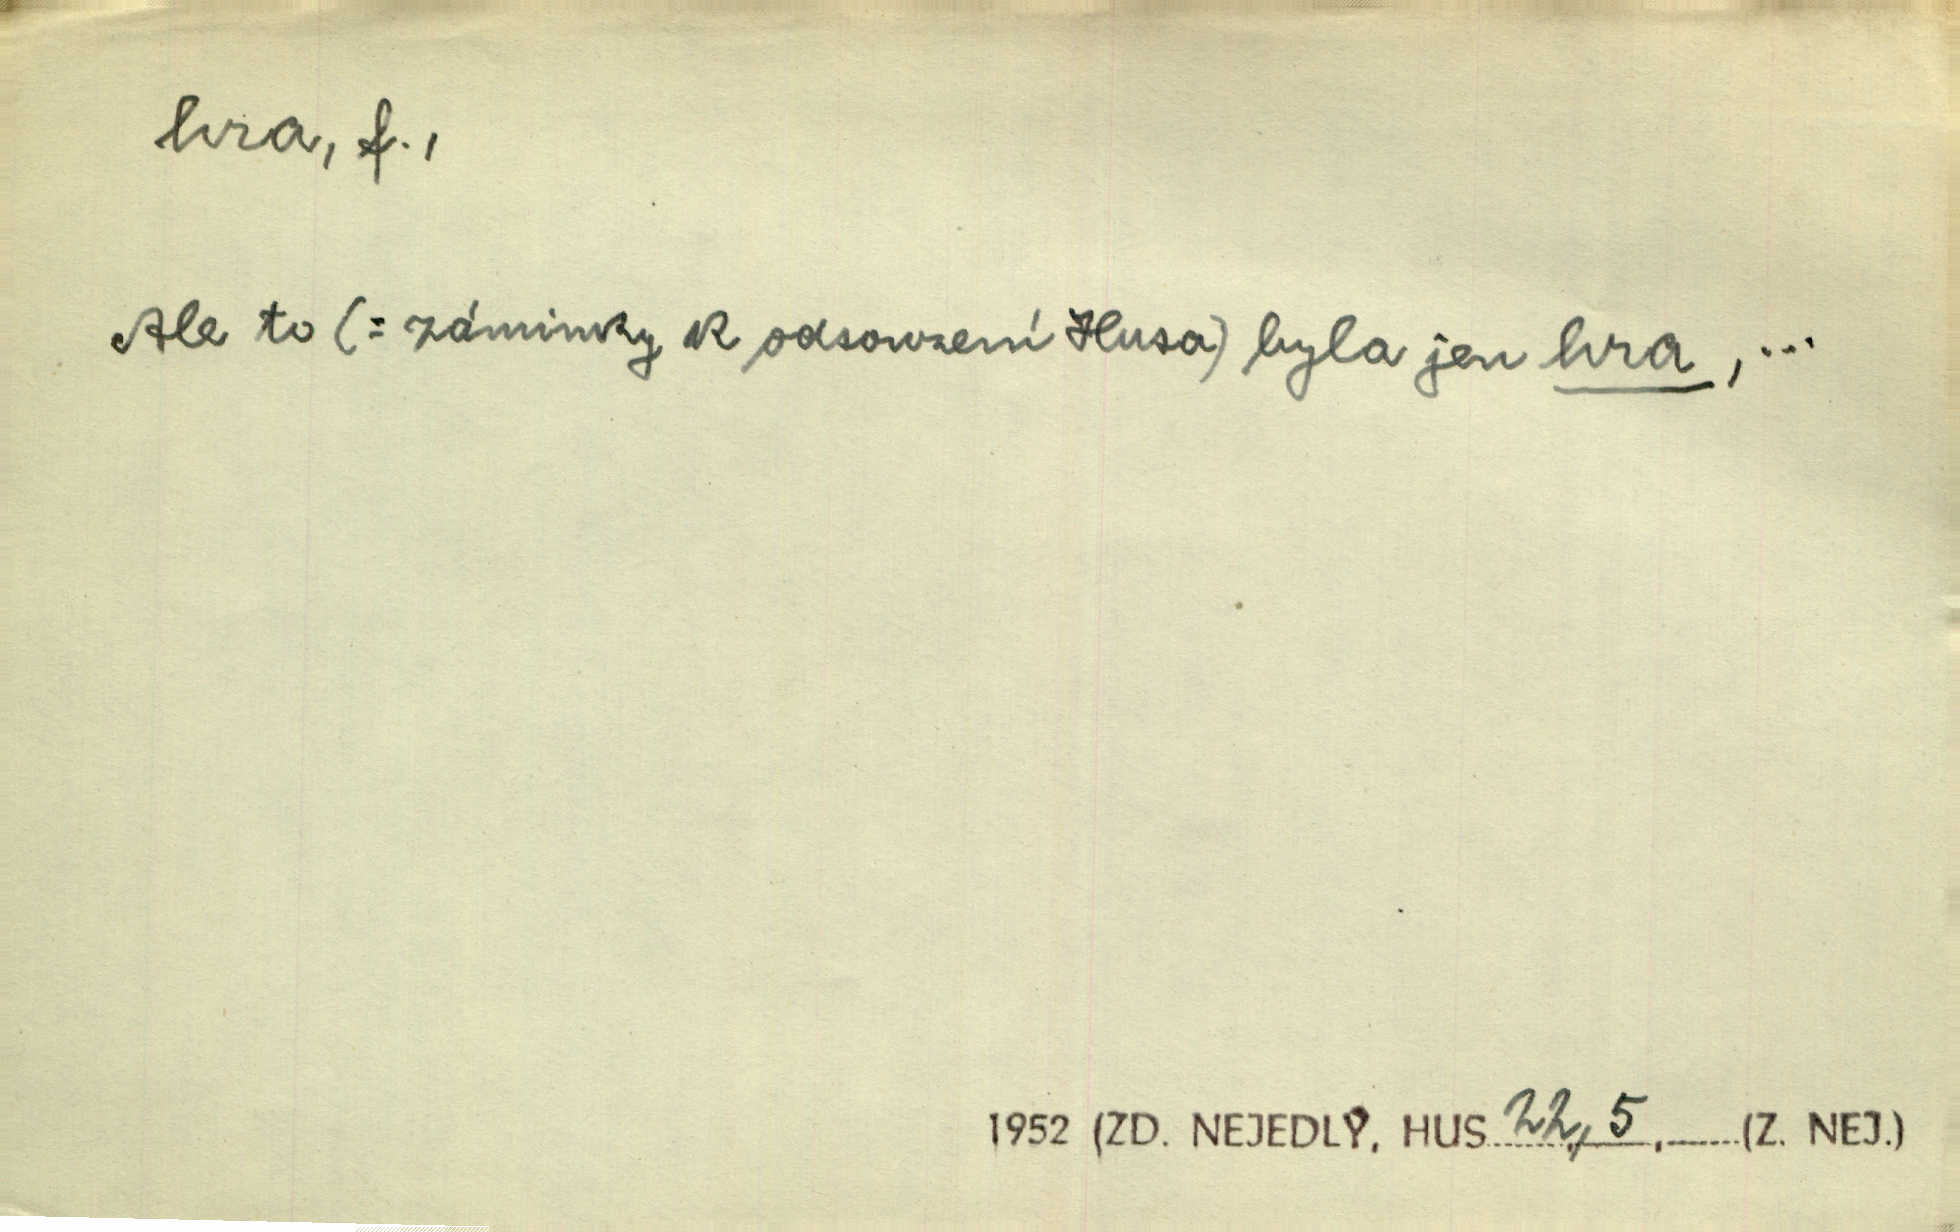 hra, f.,
Ale to (= záminky k odsouzení Husa) byla jen hra, ...
1952 (ZD. NEJEDLÝ, HUS 22, 5, (Z. NEJ.)